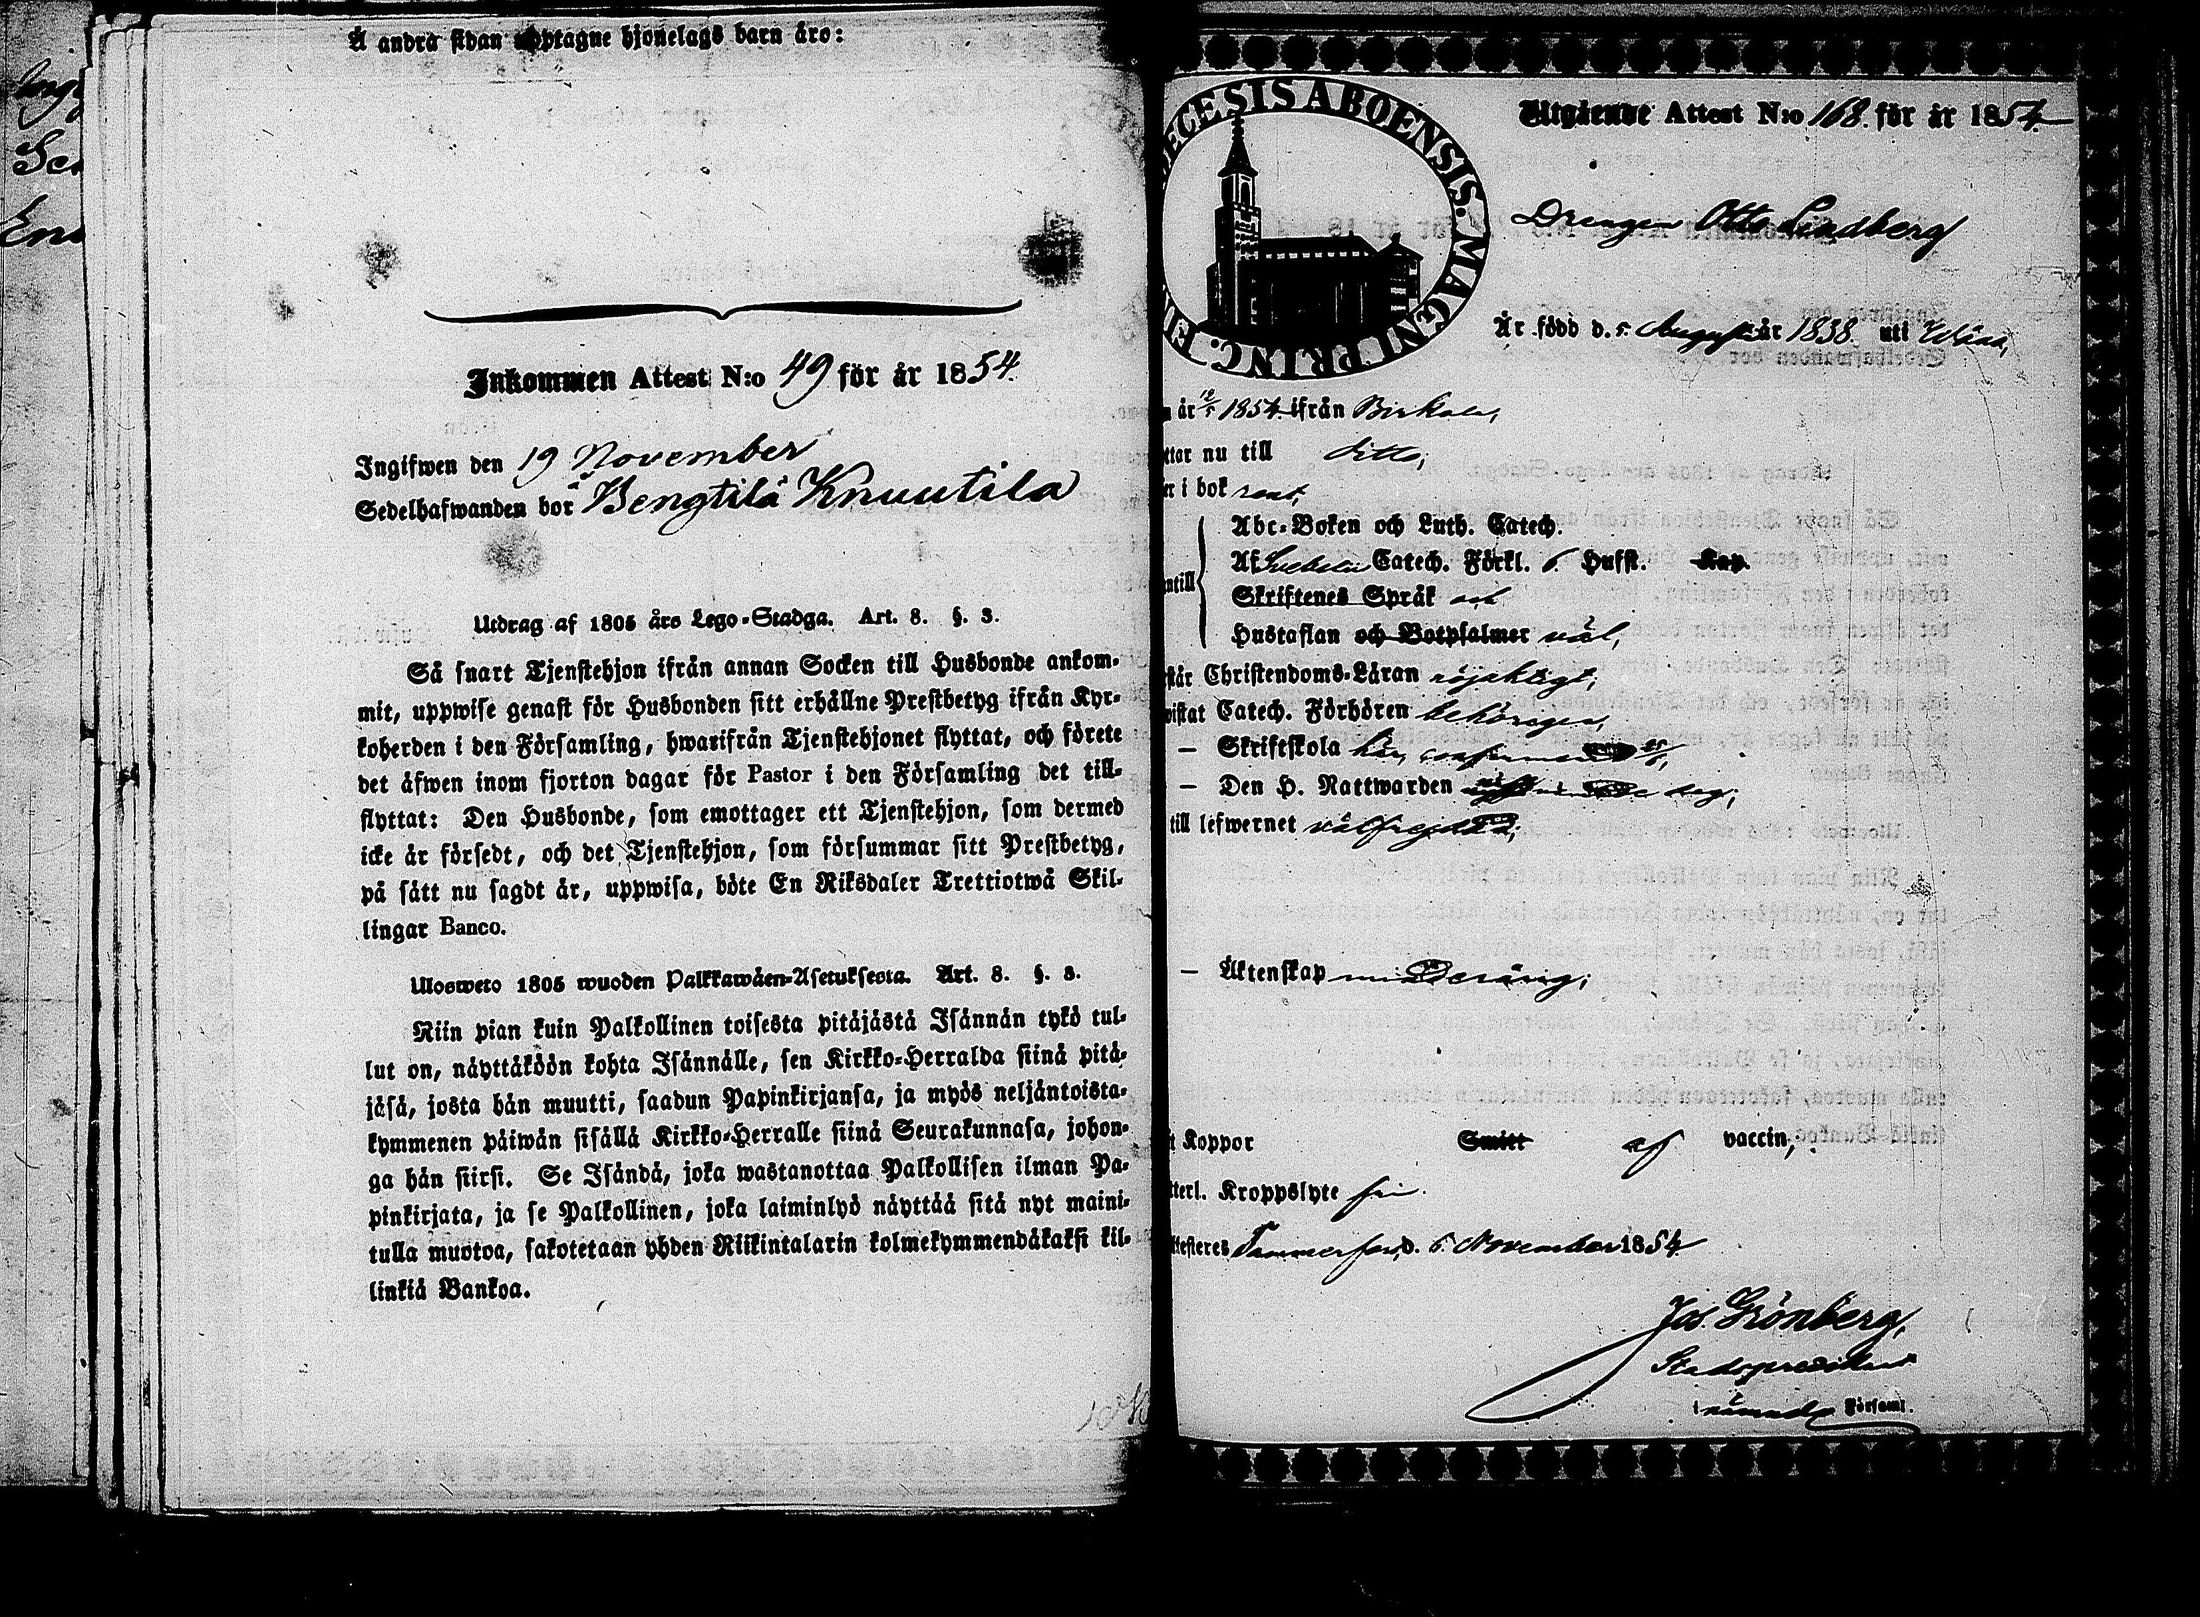 Å andra sidan upptagne hjonelags barn äro:
Inkommen Attest N:o 49 för år 1854.
Ingifwen den 19 November
Sedelhafwanden bor å Bengtilä Knuutila
Utdrag af 1805 års Lego-Stadga. Art. 8. §. 3.
Så snart Tjenstehjon ifrån annan Socken till Husbonde ankom-
mit, uppwise genast för Husbonden sitt erhållne Prestbetyg ifrån Kyr-
koherden i den Församling, hwarifrån Tjenstehjonet flyttat, och förete
det äfwen inom fjorton dagar för Pastor i den Församling det till-
flyttat: Den Husbonde, som emottager ett Tjenstehjon, som dermed
icke är försedt, och det Tjenstehjon, som försummar sitt Prestbetyg,
på sätt nu sagdt är, uppwisa, böte En Riksdaler Trettiotwå Skil-
lingar Banco.
Ulosweto 1805 wuoden Palkkawäen-Asetuksesta. Art. 8. §. 3.
Niin pian kuin Palkollinen toisesta pitäjästä Isännän tykö tul-
lut on, näyttäköön kohta Isännälle, sen Kirkko-Herralda siinä pitä-
jäsä, josta hän muutti, saadun Papinkirjansa, ja myös neljäntoista-
kymmenen päiwän sisällä Kirkko-Herralle siinä Seurakunnasa, johon-
ga hän siirsi. Se Isändä, joka wastanottaa Palkollisen ilman Pa-
pinkirjata, ja se Palkollinen, joka laiminlyö näyttää sitä nyt maini-
tulla muotoa, sakotetaan yhden Riikintalarin kolmekymmendäkaksi kil-
linkiä Bankoa.
ECESIS ABOENSIS. MAGNI PRINC.
Utgående Attest N:o 168. för år 1854
Drengen Otto Lindberg
Är född d. 5. Augusti år 1838. uti Wåsa,
år 1854 ifrån Birkala,
ttar nu till ditto,
er i bok rent,
Abc-Boken och Luth. Catech.
Af Svebelii Catech. Förkl. 6. Hufst. Kap.
ntill
Skriftenes Språk och
Hustaflan och Botpsalmer väl,
står Christendoms-Läran nöjaktigt;
wistat Catech. Förhören behörigen,
— Skriftskola här,
— Den H. Nattwarden dag;
till lefwernet välfrejdad;
— Äktenskap minderårig;
t Koppor Smitt af vaccin,
tterl. Kroppslyte fri.
ttesteres Tammerfors, d. 6. November 1854
Jos. Grönberg,
Stadspredikant
i nämnde Församl.